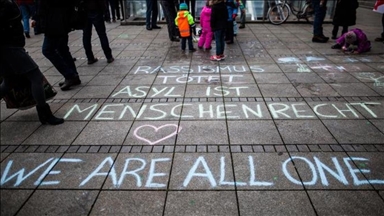 RASSISMUS
TÖTET
ASYL IST
MENSCHENRECHT
WE ARE ALL ONE.